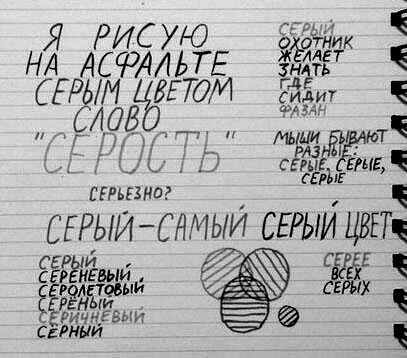 Я РИСУЮ
НА АСФАЛЬТЕ
СЕРЫМ ЦВЕТОМ
СЛОВО
"СЕРОСТЬ"
СЕРЫЙ
ОХОТНИК
ЖЕЛАЕТ
ЗНАТЬ
ГДЕ
СИДИТ
ФАЗАН
МЫШИ БЫВАЮТ
РАЗНЫЕ:
СЕРЫЕ, СЕРЫЕ,
СЕРЫЕ
СЕРЬЕЗНО?
СЕРЫЙ-САМЫЙ СЕРЫЙ ЦВЕТ
СЕРЫЙ
СЕРЕНЕВЫЙ
СЕРОЛЕТОВЫЙ
СЕРЁНЫЙ
СЕРИЧНЕВЫЙ
СЕРНЫЙ
СЕРЕЕ
ВСЕХ
СЕРЫХ